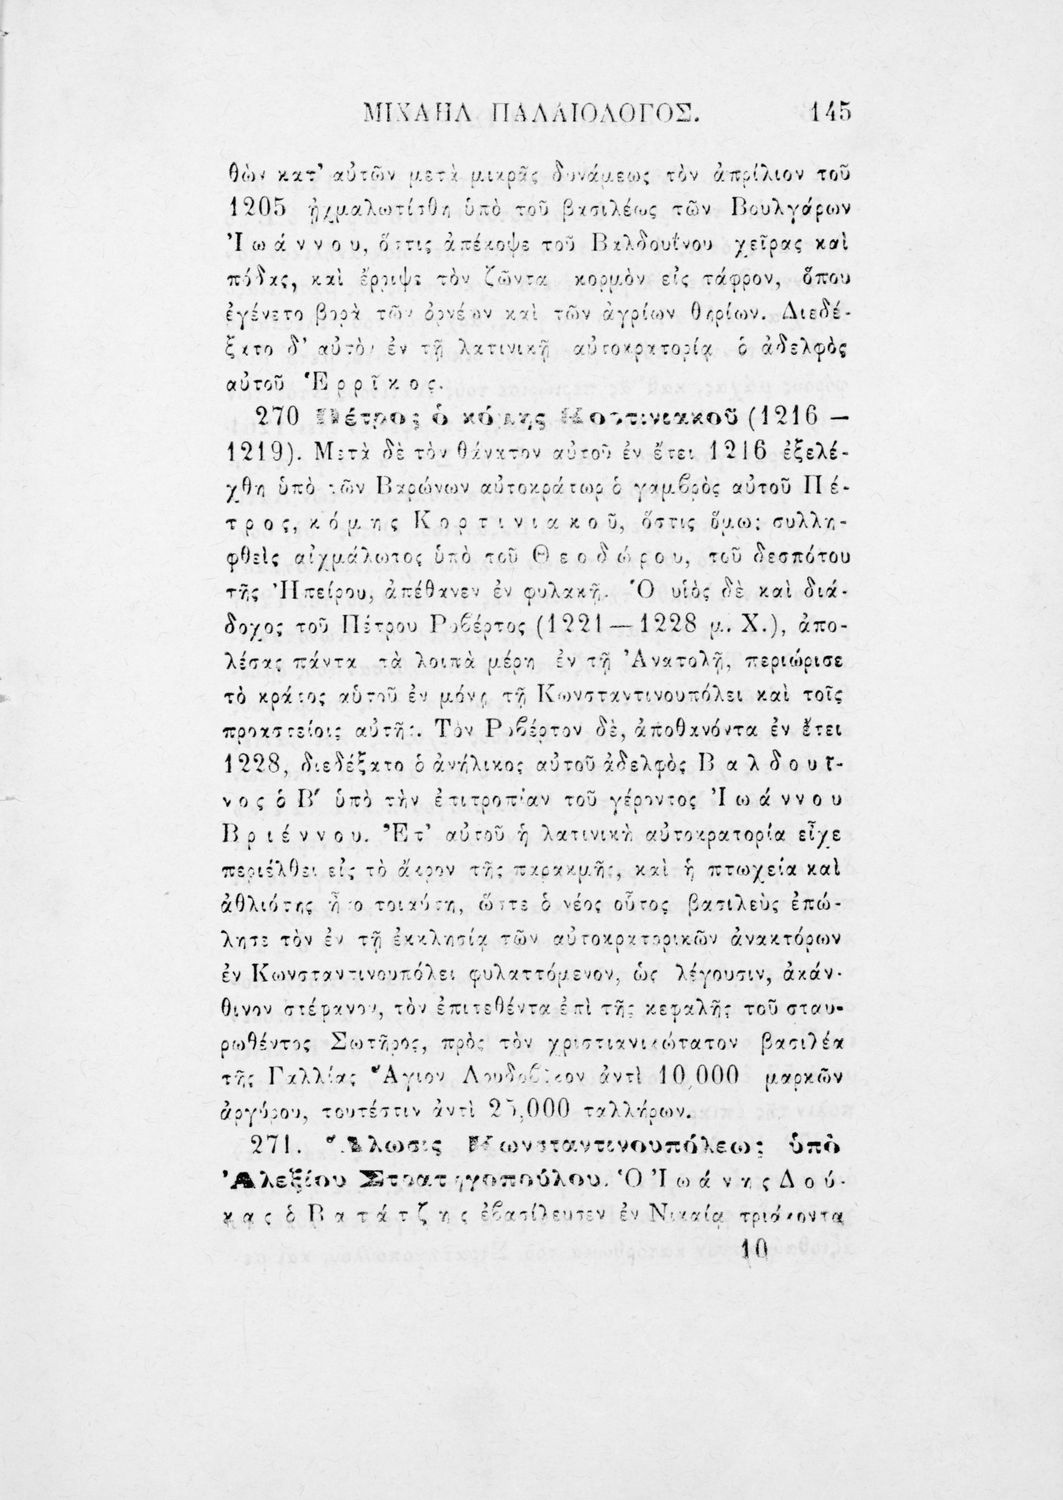 ΜΙΧΑΗΛ ΠΑΛΑΙΟΛΟΓΟΣ. 145
θὼν κατ’ αὐτῶν μετὰ μικρᾶς δυνάμεως τὸν ἀπρίλιον τοῦ
1205 ᾐχμαλωτίσθη ὑπὸ τοῦ βασιλέως τῶν Βουλγάρων
Ἰωάννου, ὅστις ἀπέκοψε τοῦ Βαλδουΐνου χεῖρας καὶ
πόδας, καὶ ἔρριψε τὸν ζῶντα κορμὸν εἰς τάφρον, ὅπου
ἐγένετο βορὰ τῶν ὀρνέων καὶ τῶν ἀγρίων θηρίων. Διεδέ-
ξατο δ’ αὐτὸν ἐν τῇ λατινικῇ αὐτοκρατορίᾳ ὁ ἀδελφὸς
αὐτοῦ Ἑρρῖκος.
270 Πέτρος ὁ κόμης Κορτινιακοῦ (1216 —
1219). Μετὰ δὲ τὸν θάνατον αὐτοῦ ἐν ἔτει 1216 ἐξελέ-
χθη ὑπὸ τῶν Βαρώνων αὐτοκράτωρ ὁ γαμβρὸς αὐτοῦ Πέ-
τρος, κόμης Κορτινιακοῦ, ὅστις ὅμως συλλη-
φθεὶς αἰχμάλωτος ὑπὸ τοῦ Θεοδώρου, τοῦ δεσπότου
τῆς Ἠπείρου, ἀπέθανεν ἐν φυλακῇ. Ὁ υἱὸς δὲ καὶ διά-
δοχος τοῦ Πέτρου Ροβέρτος (1221 — 1228 μ. Χ.), ἀπο-
λέσας πάντα τὰ λοιπὰ μέρη ἐν τῇ Ἀνατολῇ, περιώρισε
τὸ κράτος αὑτοῦ ἐν μόνῃ τῇ Κωνσταντινουπόλει καὶ τοῖς
προαστείοις αὐτῆς. Τὸν Ροβέρτον δὲ, ἀποθανόντα ἐν ἔτει
1228, διεδέξατο ὁ ἀνήλικος αὐτοῦ ἀδελφὸς Βαλδουΐ-
νος ὁ Β′ ὑπὸ τὴν ἐπιτροπίαν τοῦ γέροντος Ἰωάννου
Βριέννου. Ἐπ’ αὐτοῦ ἡ λατινικὴ αὐτοκρατορία εἶχε
περιέλθει εἰς τὸ ἄκρον τῆς παρακμῆς, καὶ ἡ πτωχεία καὶ
ἀθλιότης ἦτο τοιαύτη, ὥστε ὁ νέος οὗτος βασιλεὺς ἐπώ-
λησε τὸν ἐν τῇ ἐκκλησίᾳ τῶν αὐτοκρατορικῶν ἀνακτόρων
ἐν Κωνσταντινουπόλει φυλαττόμενον, ὡς λέγουσιν, ἀκάν-
θινον στέφανον, τὸν ἐπιτεθέντα ἐπὶ τῆς κεφαλῆς τοῦ σταυ-
ρωθέντος Σωτῆρος, πρὸς τὸν χριστιανικώτατον βασιλέα
τῆς Γαλλίας Ἅγιον Λουδοβῖκον ἀντὶ 10,000 μαρκῶν
ἀργύρου, τουτέστιν ἀντὶ 25,000 ταλλήρων.
271. Ἅλωσις Κωνσταντινουπόλεως ὑπὸ
Ἀλεξίου Στρατηγοπούλου. Ὁ Ἰωάννης Δού-
κας ὁ Βατάτζης ἐβασίλευσεν ἐν Νικαίᾳ τριάκοντα
10